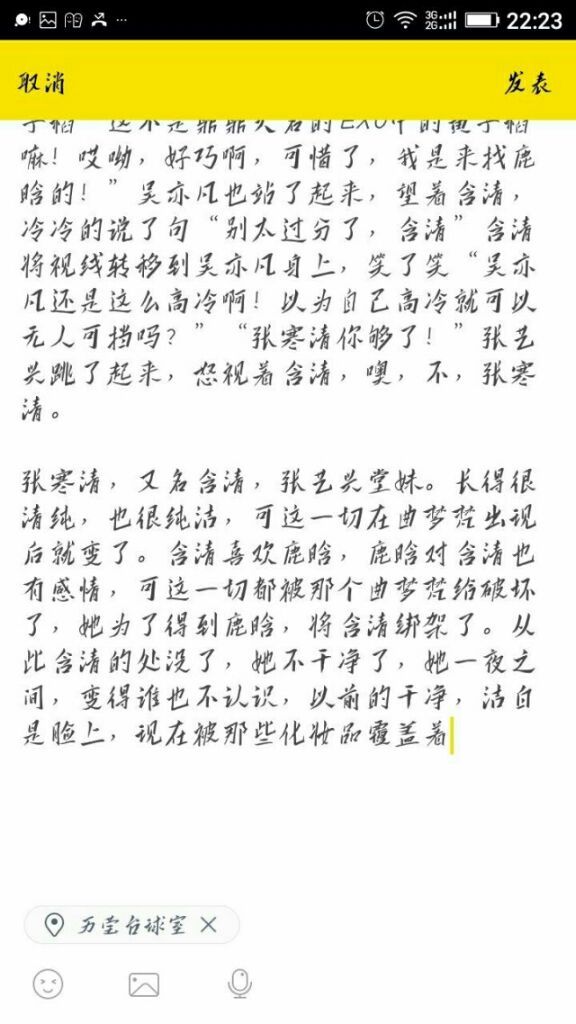 22:23
取消
发表
子韬“这不是鼎鼎大名的EXO中的黄子韬
嘛！哎呦，好巧啊，可惜了，我是来找鹿
晗的！”吴亦凡也站了起来，望着含清，
冷冷的说了句“别太过分了，含清”含清
将视线转移到吴亦凡身上，笑了笑“吴亦
凡还是这么高冷啊！以为自己高冷就可以
无人可挡吗？”“张寒清你够了！”张艺
兴跳了起来，怒视着含清，噢，不，张寒
清。
张寒清，又名含清，张艺兴堂妹。长得很
清纯，也很纯洁，可这一切在曲梦梵出现
后就变了。含清喜欢鹿晗，鹿晗对含清也
有感情，可这一切都被那个曲梦梵给破坏
了，她为了得到鹿晗，将含清绑架了。从
此含清的处没了，她不干净了，她一夜之
间，变得谁也不认识，以前的干净，洁白
是脸上，现在被那些化妆品覆盖着
万莹台球室